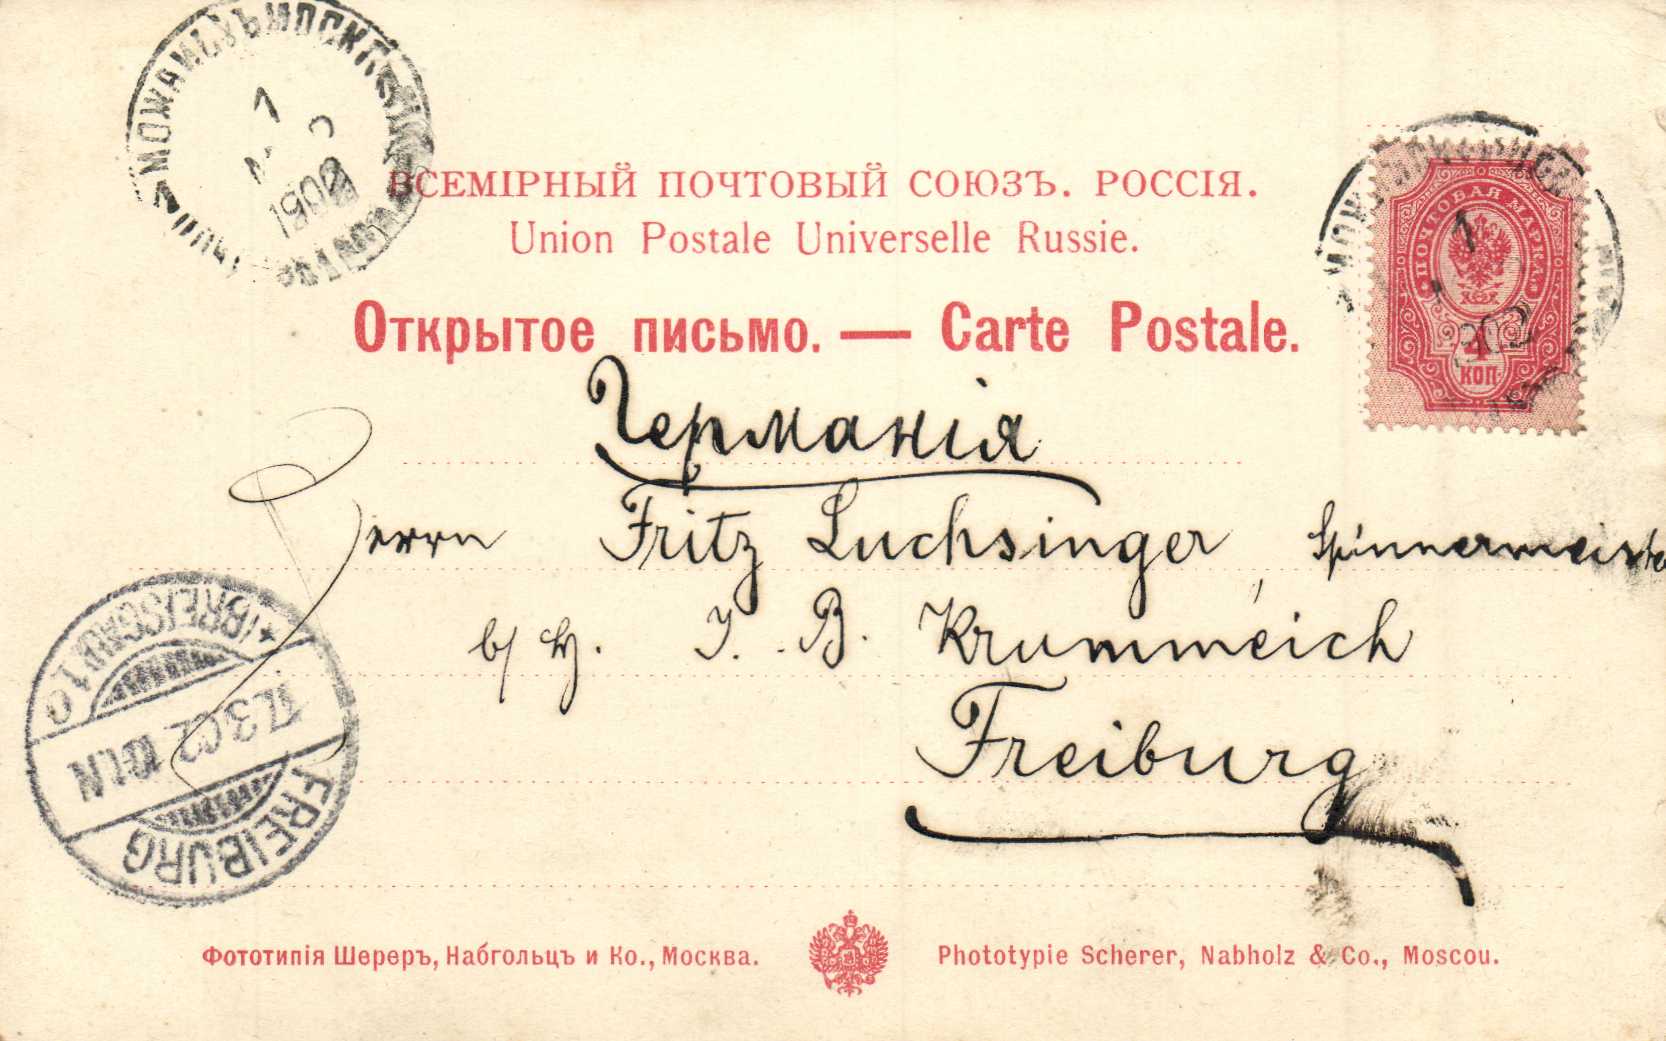 1902
ВСЕМІРНЫЙ ПОЧТОВЫЙ СОЮЗЪ. РОССІЯ.
Union Postale Universelle Russie.
Открытое письмо. — Carte Postale.
ПОЧТОВАЯ МАРКА
1
4
КОП.
Германія
Herrn Fritz Luchsinger, Spinnermeister
b/ H. J. B. Krummeich
Freiburg
* (BREISGAU) 1 c
17.3.02.10-11.N
FREIBURG
Фототипія Шереръ, Набгольцъ и Ко., Москва.
Phototypie Scherer, Nabholz & Co., Moscou.